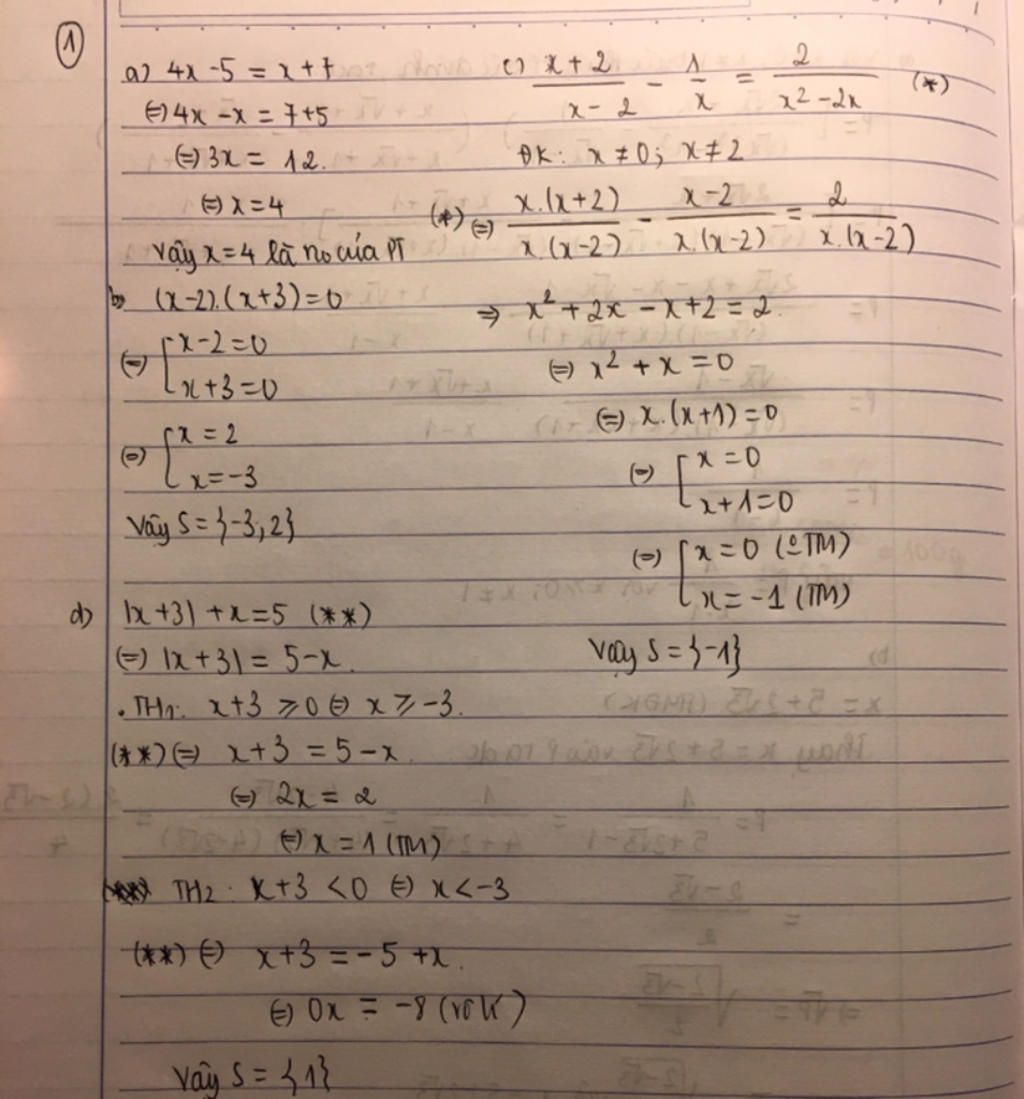 1
a) 4x - 5 = x + 7
(=) 4x - x = 7 + 5
(=) 3x = 12.
(=) x = 4
Vậy x = 4 là no của PT
b) (x-2).(x+3) = 0
(=) [ x - 2 = 0
x + 3 = 0
(=) [ x = 2
x = -3
Vậy S = {-3; 2}
c) \frac{x+2}{x-2} - \frac{1}{x} = \frac{2}{x^2-2x} (*)
ĐK: x ≠ 0; x ≠ 2
(*) (=) \frac{x.(x+2)}{x.(x-2)} - \frac{x-2}{x.(x-2)} = \frac{2}{x.(x-2)}
⇒ x² + 2x - x + 2 = 2.
(=) x² + x = 0
(=) x.(x+1) = 0
(=) [ x = 0
x + 1 = 0
(=) [ x = 0 (oTM)
x = -1 (TM)
Vậy S = {-1}
d) |x+3| + x = 5 (**)
(=) |x+3| = 5 - x.
. TH1: x + 3 ≥ 0 (=) x ≥ -3.
(**) (=) x + 3 = 5 - x.
(=) 2x = 2
(=) x = 1 (TM)
TH2: x + 3 < 0 (=) x < -3
(**) (=) x + 3 = -5 + x.
(=) 0x = -8 (vô lí)
Vậy S = {1}